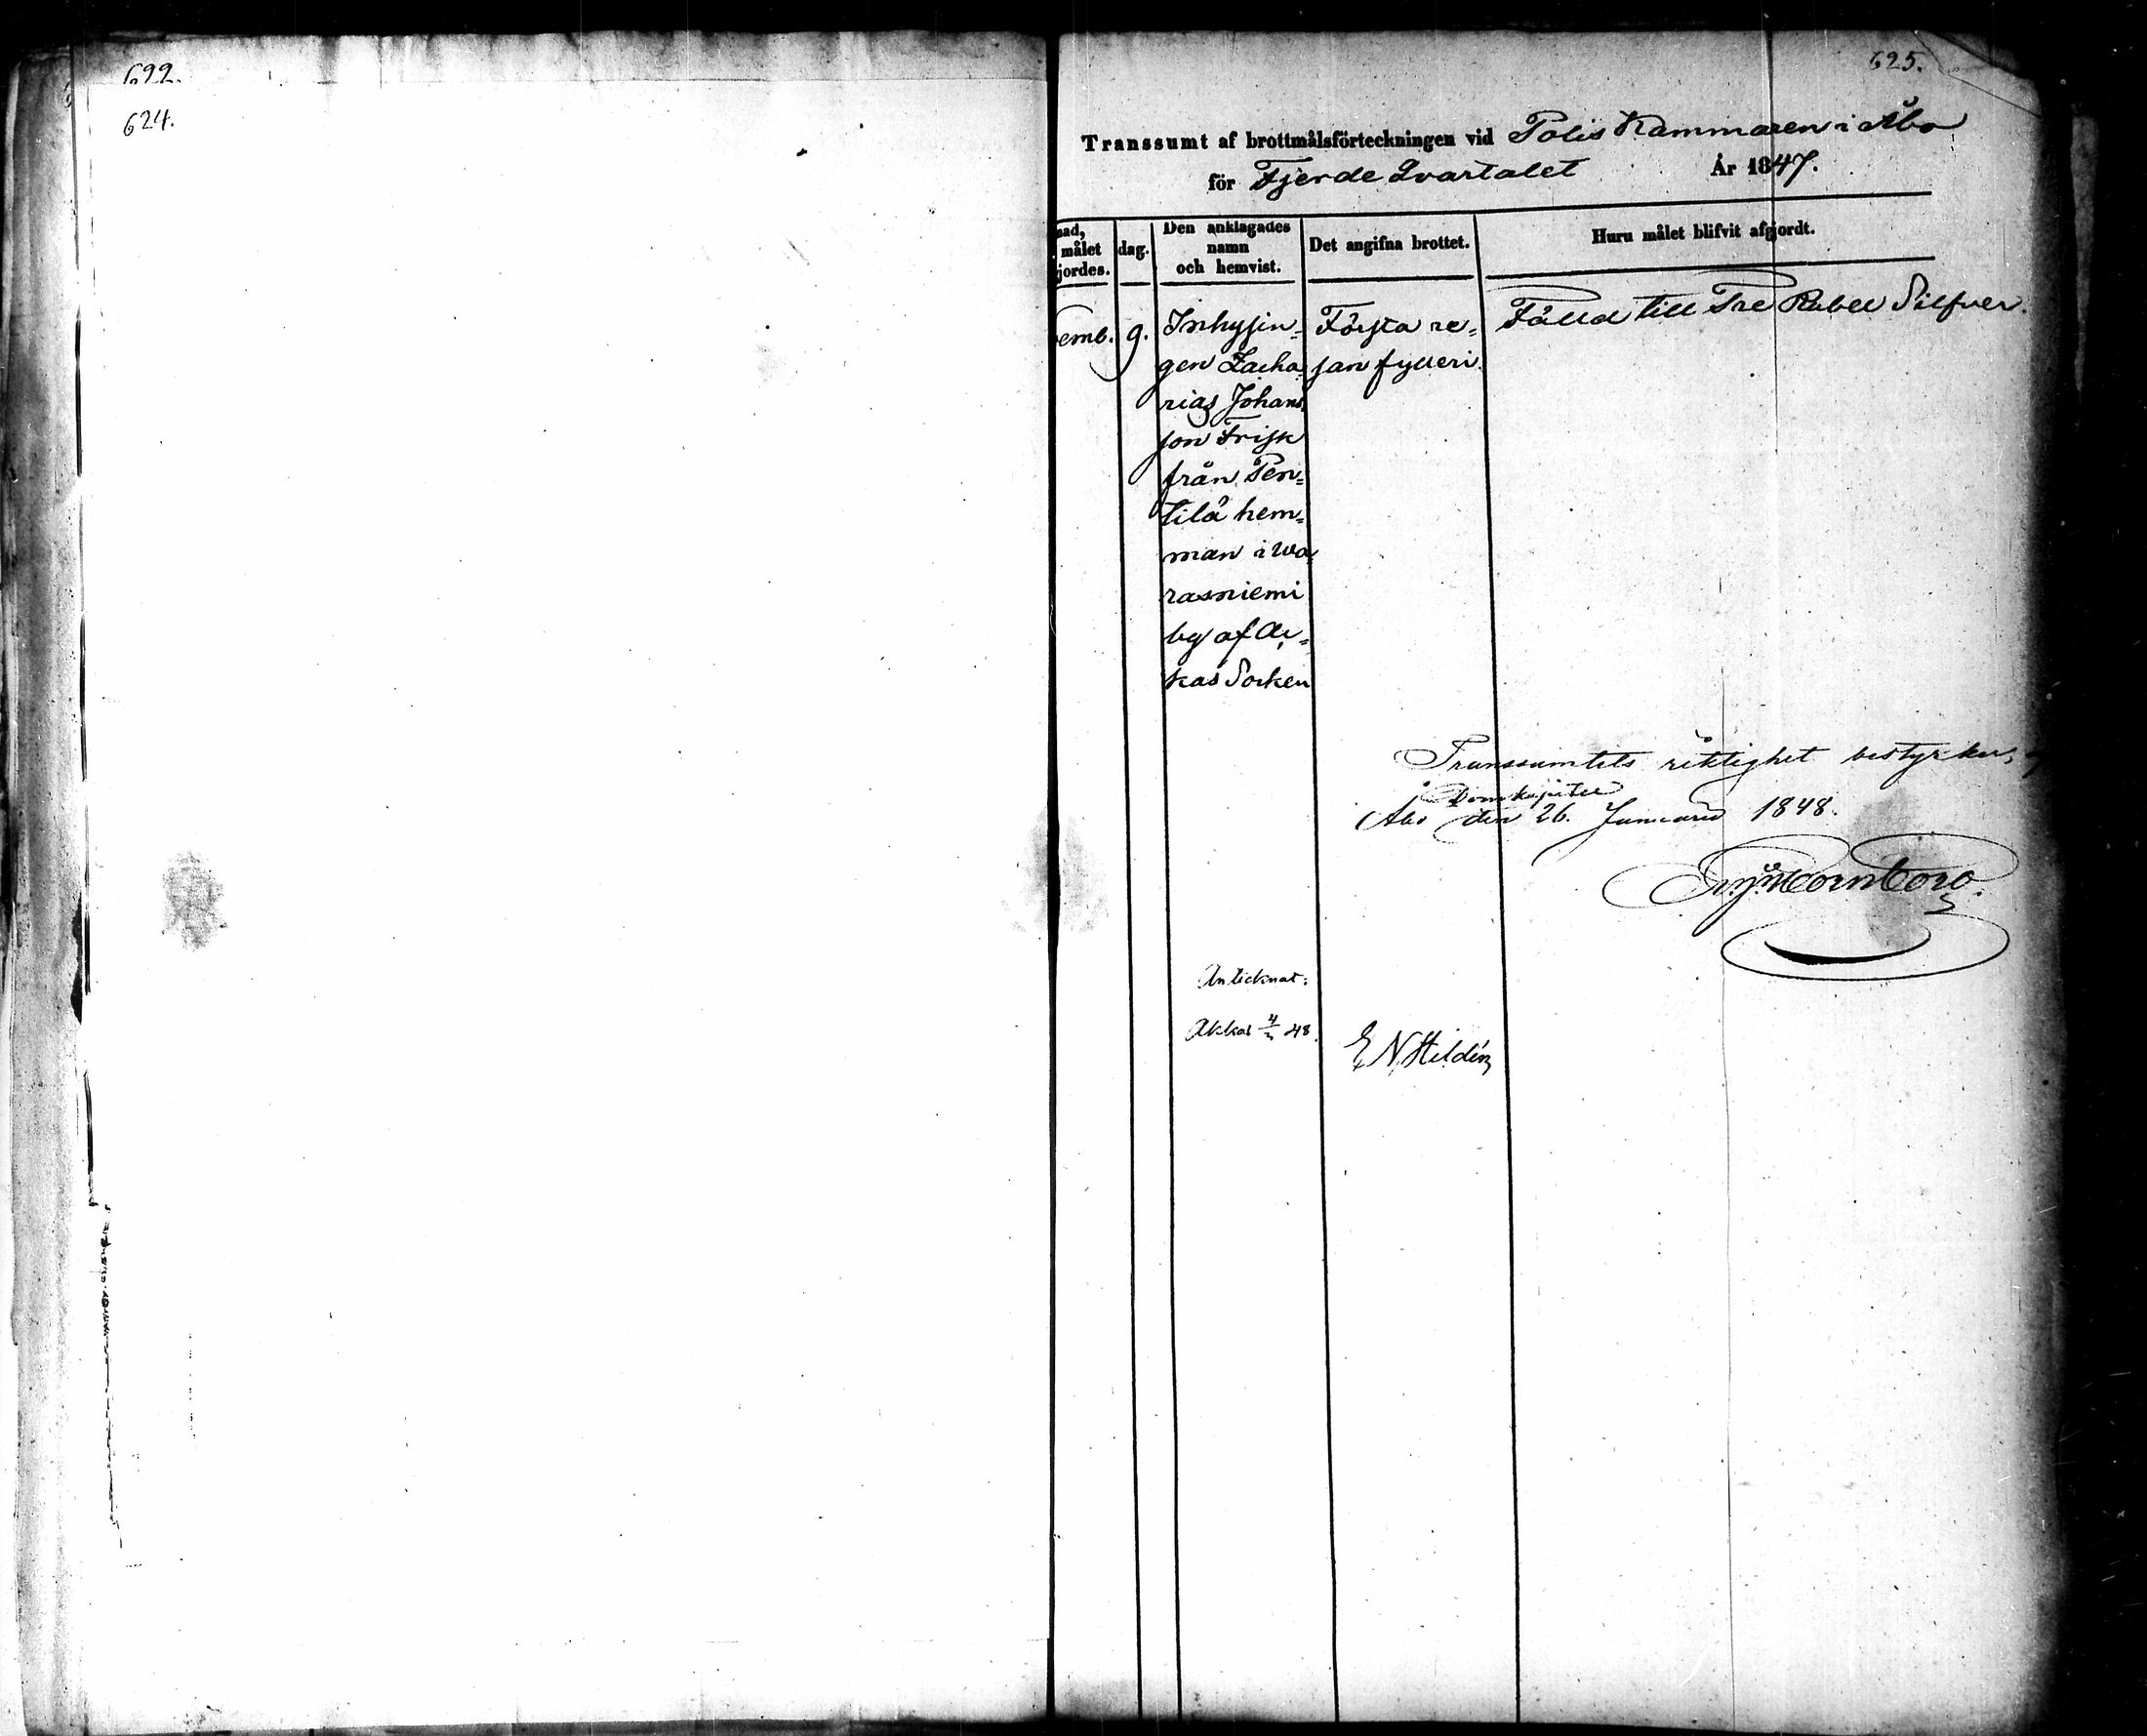 622.
624.
625.
Transsumt af brottmålsförteckningen vid Polis Kammaren i Åbo
för Fjerde Qvartalet År 1847.
nad,
målet
jordes.
dag.
Den anklagades
namn
och hemvist.
Det angifna brottet.
Huru målet blifvit afgjordt.
emb. 9.
Inhysin=
gen Zacha=
rias Johans
son Frisk
från Pen=
tilä hem=
man i Wa=
rasniemi
by af Ac=
kas Socken
Första re=
san fylleri.
Fälld till Tre Rubel Silfver.
Transsumtets riktighet bestyrker,
Åbo Domkapitel
den 26. Januarii 1848.
Anteknat:
Akkas 4/3 48.
E N Hildén